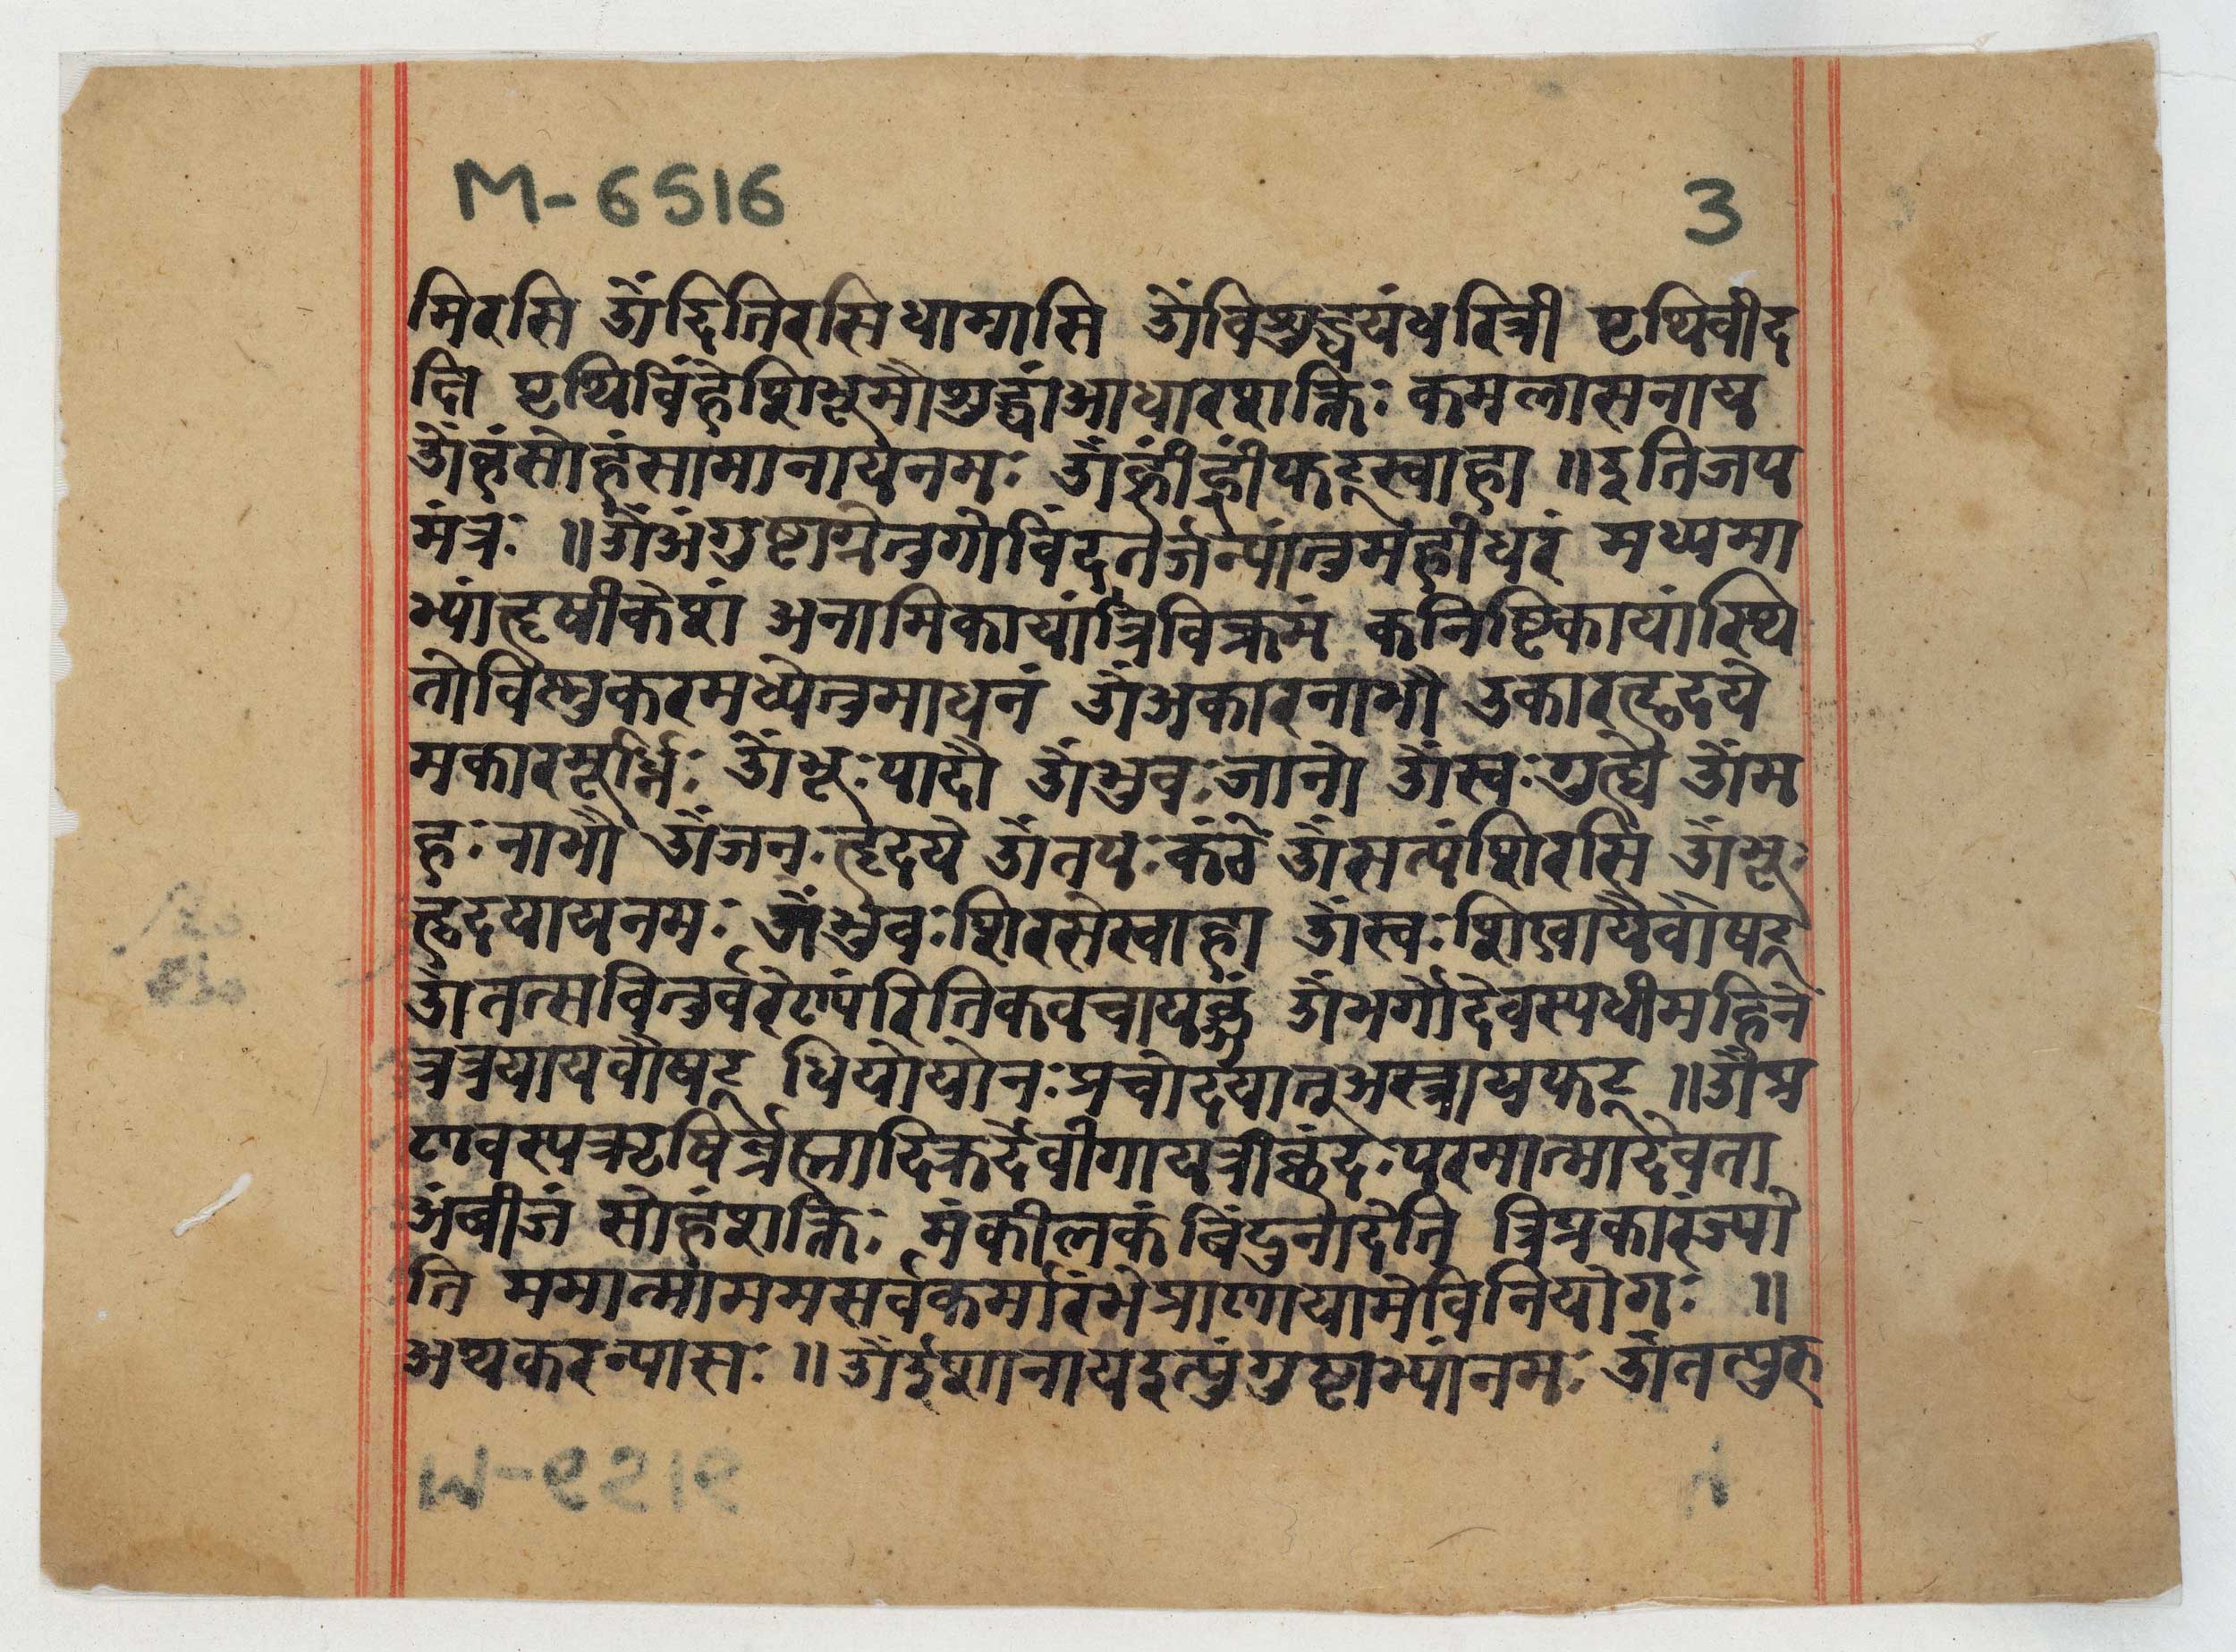 M-6516 3
मिरसि ॐदितिरसिधामासि ॐविशुद्ध्ययंधरित्री पृथिवीद
त्ति पृथिविंहेशिभूमौशुद्धांआधारशक्तिः कमलासनाय
ॐहंसोहंसामानायनमः ॐह्रींह्रींफट्स्वाहा ॥इतिजप
मंत्रः ॥ॐअंगुष्टाग्रेनुगोविंदतर्जन्यांनुमहीधरं मध्यमा
भ्यांहृषीकेशं अनामिकायांत्रिविक्रमं कनिष्टिकायांस्थि
तोविस्नुकरमध्येनुमाधनं ॐअकारनाभौ उकारहृदये
मकारमूर्ध्निः ॐभूःपादौ ॐभुवःजानो ॐस्वःगुह्ये ॐम
हःनाभौ ॐजनःहृदये ॐतपःकंठे ॐसत्यंशिरसि ॐभूः
हृदयायनमः ॐभुवःशिरसेस्वाहा ॐस्वःशिखायैवौषट्
ॐतत्सवितुर्वरेण्यंरितिकवचायहुं ॐभर्गोदेवस्यधीमहिने
त्रत्रयायवौषट् धियोयोनःप्रचोदयातुअस्त्रायफट् ॥ॐप्र
णवस्यऋषिर्ब्रह्मादिकदैवीगायत्रीछंदःपरमात्मादेवता
अंबीजं सोहंशक्तिः मंकीलकं बिंदुनादेति त्रिप्रकारंज्पो
ति ममात्माममसर्वकर्मारंभेप्राणायामेविनियोगः ॥
अथकरन्यासः ॥ॐईशानायइत्युंगुष्टाभ्यांनमः ॐतत्पुरु